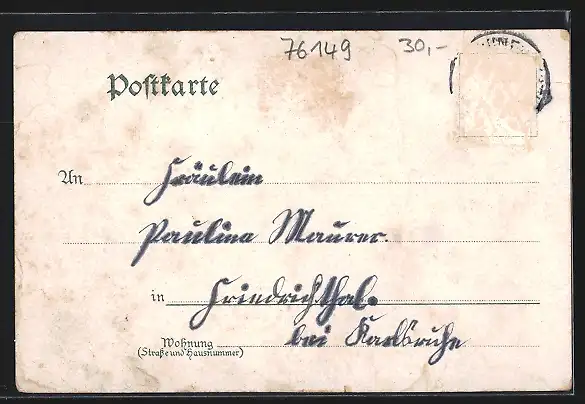 76149 30,-
Postkarte
An Fräulein
Paulina Maurer.
in Friedrichthal.
bei Karlsruhe
Wohnung
(Straße und Hausnummer)